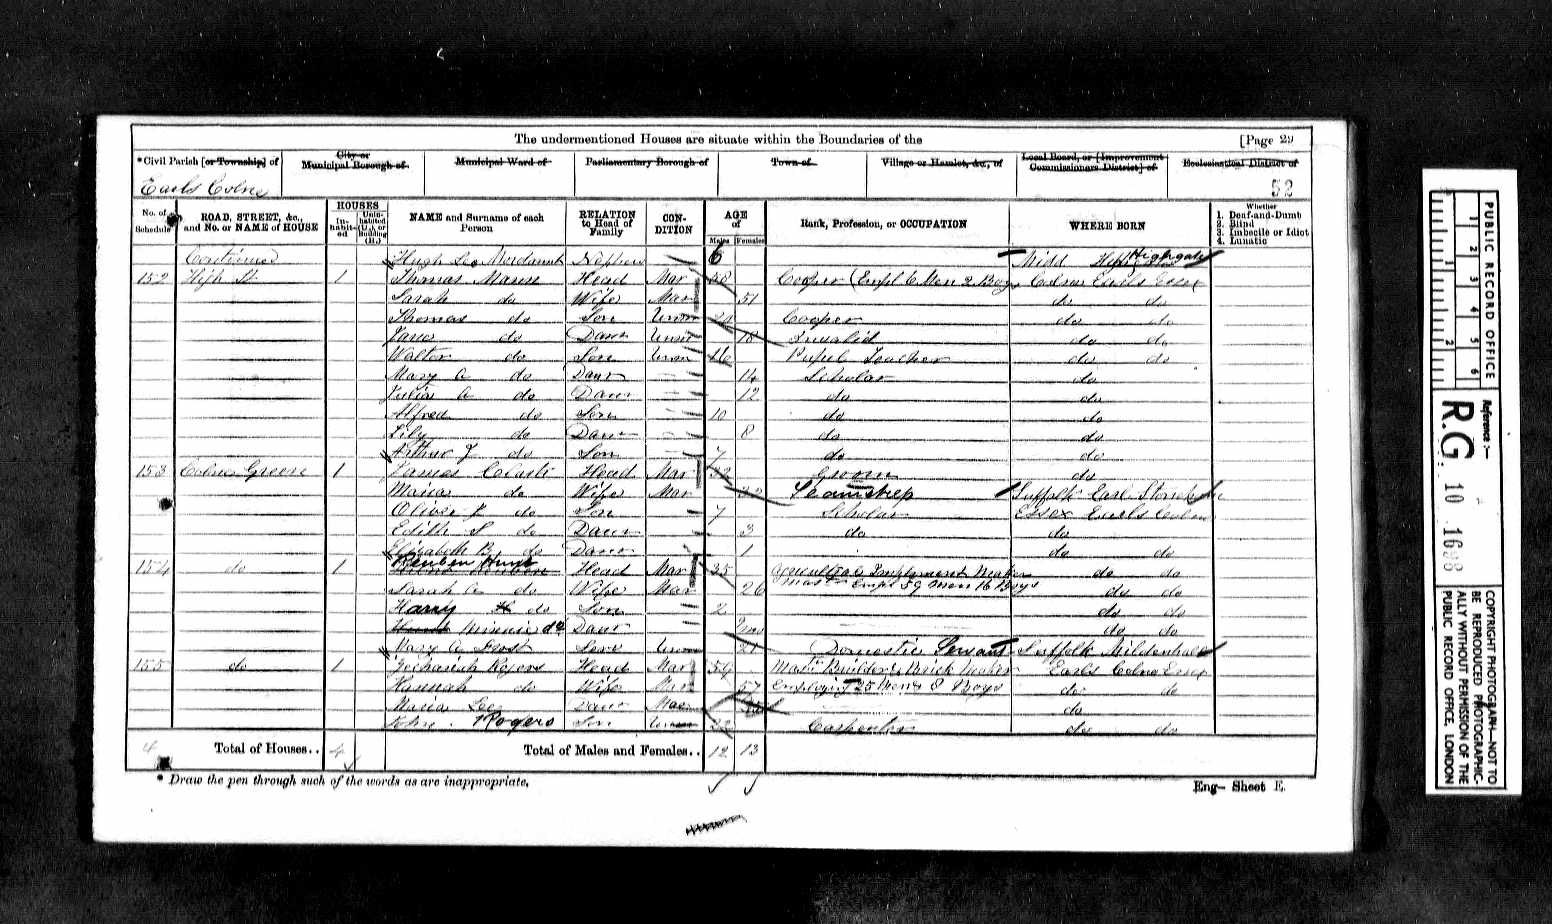 The undermentioned Houses are situate within the Boundaries of the [Page 29
* Civil Parish [or Township] of
City or Municipal Borough of
Municipal Ward of
Parliamentary Borough of
Town of
Village or Hamlet, &c., of
Local Board, or [Improvement Commissioners District] of
Ecclesiastical District of
Earls Colne
52
No. of Schedule
ROAD, STREET, &c., and No. or NAME of HOUSE
HOUSES
Inhabited
Uninhabited (U.), or Building (B.)
NAME and Surname of each Person
RELATION to Head of Family
CONDITION
AGE of
Males Females
Rank, Profession, or OCCUPATION
WHERE BORN
Whether
1. Deaf-and-Dumb
2. Blind
3. Imbecile or Idiot
4. Lunatic
Continued Hugh Lee Nephew 6 Midd Highgate
152 High St 1 Thomas Mann Head Mar Cooper (Empl 6 Men 2 Boys Earls Essex
Sarah do Wife Mar 51 do do
Thomas do Son Unm Cooper do do
Jane do Daur Unm 18 Invalid do do
Walter do Son Unm 16 Pupil Teacher do do
Mary A do Daur 14 Scholar do
Julia A do Daur 12 do do
Alfred do Son 10 do do
Lily do Daur 8 do do
Arthur J do Son 7 do do
153 Colne Green 1 James Head Mar 32 Groom do
Maria do Wife Mar 32 Seamstress Suffolk Earl Stonham
Oliver J do Son 7 Scholar Essex Earls Colne
Edith S do Daur 3 do do
Elizabeth B do Daur 1 do do
154 do 1 Reuben Hunt Head Mar 35 Agricultural Implement Maker do do
Sarah A do Wife Mar 26 Master Empl 59 Men 16 Boys do do
Harry H do Son 2 do do
Hunt Minnie do Daur do do
Mary A Serv Unm 21 Domestic Servant Suffolk Mildenhall
155 do 1 Zechariah Rogers Head Mar 59 Mastr Builder & Brick Maker Earls Colne Essex
Hannah do Wife Mar 57 Employing 25 Men & 8 Boys do do
Maria Lee Daur Mar do
John Rogers Son Unm 22 Carpenter do do
4 Total of Houses.. 4 Total of Males and Females.. 12 13
* Draw the pen through such of the words as are inappropriate.
Eng— Sheet E.
PUBLIC RECORD OFFICE
1 2 3 4 5 6
1 2
Reference :—
R.G. 10 1698
COPYRIGHT PHOTOGRAPH—NOT TO
BE REPRODUCED PHOTOGRAPHIC-
ALLY WITHOUT PERMISSION OF THE
PUBLIC RECORD OFFICE, LONDON